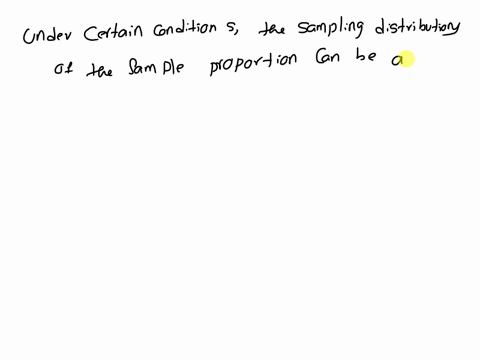 Under Certain Conditions, the sampling distributiony
of the Sample proportion Can be a